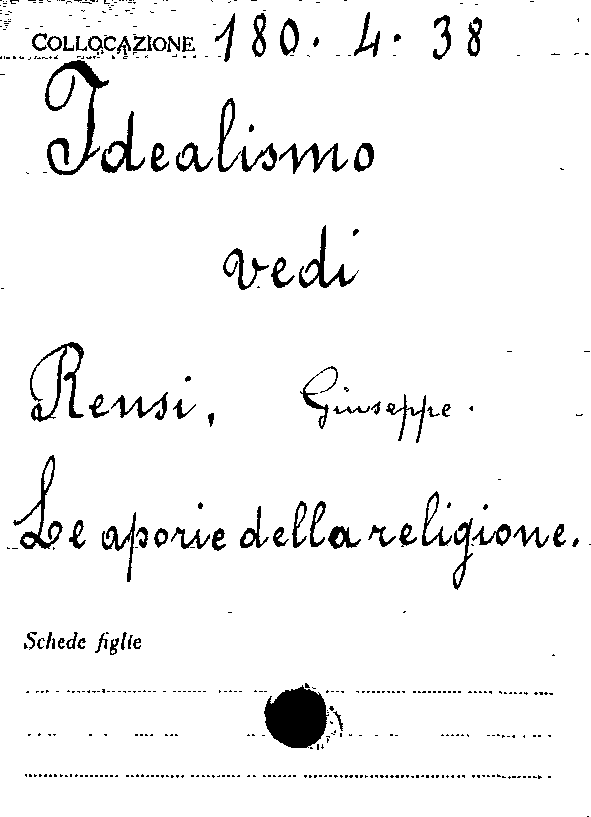 COLLOCAZIONE 180. 4. 38
Idealismo
vedi
Rensi, Giuseppe.
Le aporie della religione.
Schede figlie